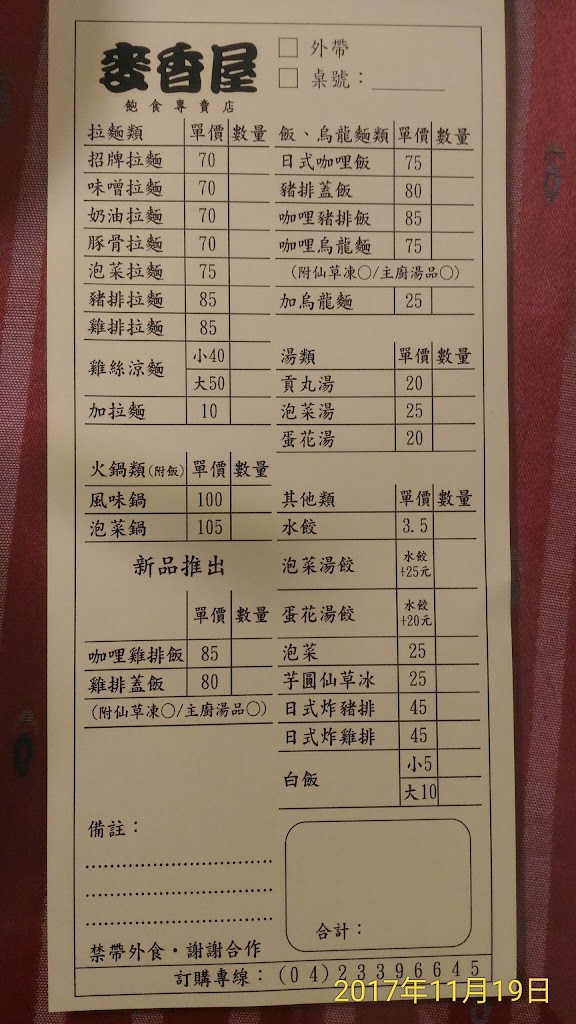 麥香屋
飽食專賣店
□ 外帶
□ 桌號：
拉麵類 單價 數量
招牌拉麵 70
味噌拉麵 70
奶油拉麵 70
豚骨拉麵 70
泡菜拉麵 75
豬排拉麵 85
雞排拉麵 85
雞絲涼麵 小40
大50
加拉麵 10
火鍋類(附飯) 單價 數量
風味鍋 100
泡菜鍋 105
新品推出
單價 數量
咖哩雞排飯 85
雞排蓋飯 80
(附仙草凍○/主廚湯品○)
飯、烏龍麵類 單價 數量
日式咖哩飯 75
豬排蓋飯 80
咖哩豬排飯 85
咖哩烏龍麵 75
(附仙草凍○/主廚湯品○)
加烏龍麵 25
湯類 單價 數量
貢丸湯 20
泡菜湯 25
蛋花湯 20
其他類 單價 數量
水餃 3.5
泡菜湯餃 水餃
+25元
蛋花湯餃 水餃
+20元
泡菜 25
芋圓仙草冰 25
日式炸豬排 45
日式炸雞排 45
白飯 小5
大10
備註：
合計：
禁帶外食・謝謝合作
訂購專線：(04)23396645
2017年11月19日